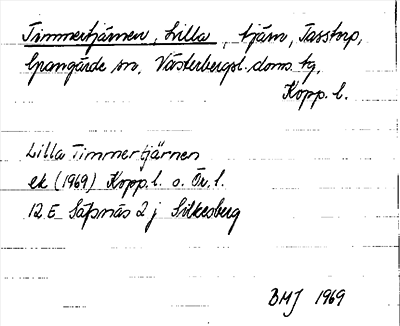 Timmertjärnen, Lilla, tjärn, Tasstorp,
Grangärde sn, Västerbergsl. doms. tg,
Kopp. l.
Lilla Timmertjärnen
ek (1969) Kopp. l. o. Ör. l.
12 E Säfsnäs 2 j Silkesberg
BMJ 1969